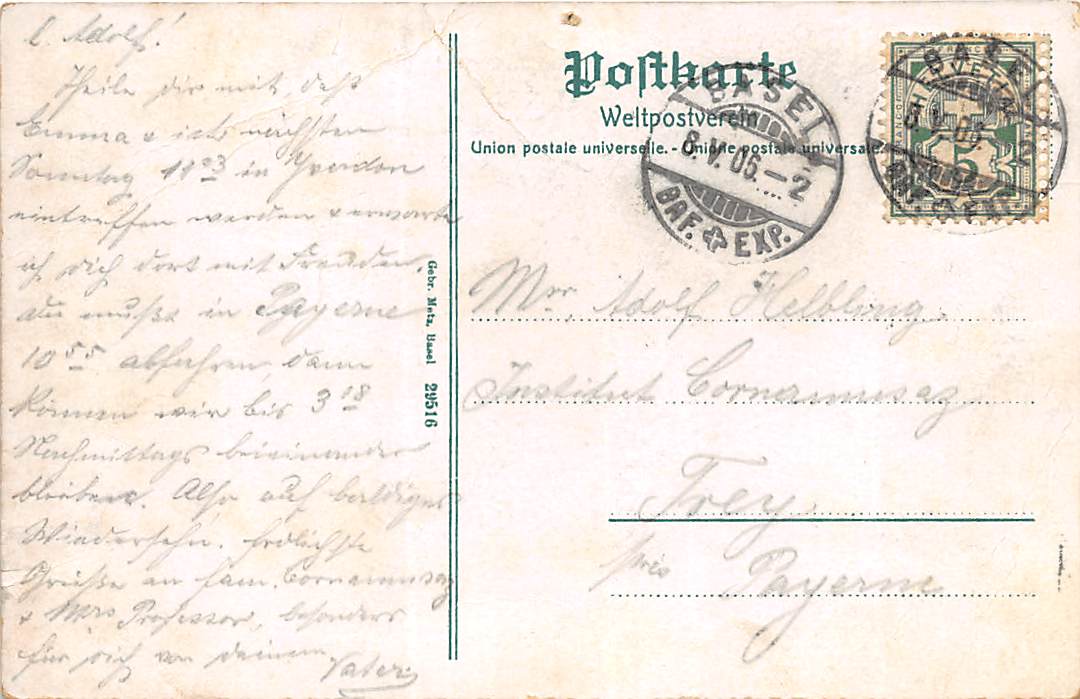 l. Adolf!
Theile dir mit, daß
Emma & ich nächsten
Sonntag 11 23 in Yverdon
eintreffen werden & erwarte
ich dich dort mit Freuden,
du mußt in Payerne
10 55 abfahren, dann
können wir bis 3 18
Nachmittags beieinander
bleiben. Also auf baldiges
Wiedersehn. Herzlichste
Grüße an Fam. Cornamusaz
& Mrs Professor, besonders
für dich von deinem
Vater
Gebr. Metz, Basel 29516
Postkarte
Weltpostverein
Union postale universelle. - Unione postale universale.
BASEL
8.V.05.-2
BRF. EXP.
HELVETIA
5
Mr. Adolf Helbling
Institut Cornamusaz
Trey
près Payerne